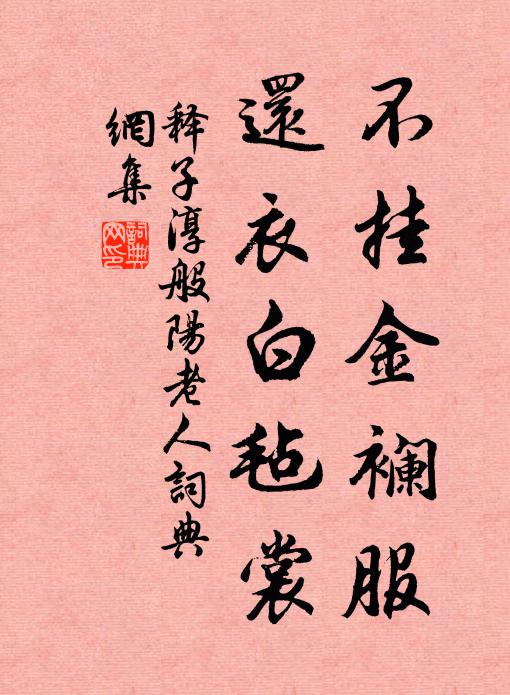 不挂金襴服
還衣白毡裳
释子淳般陽老人詞典
網集
詞典網印